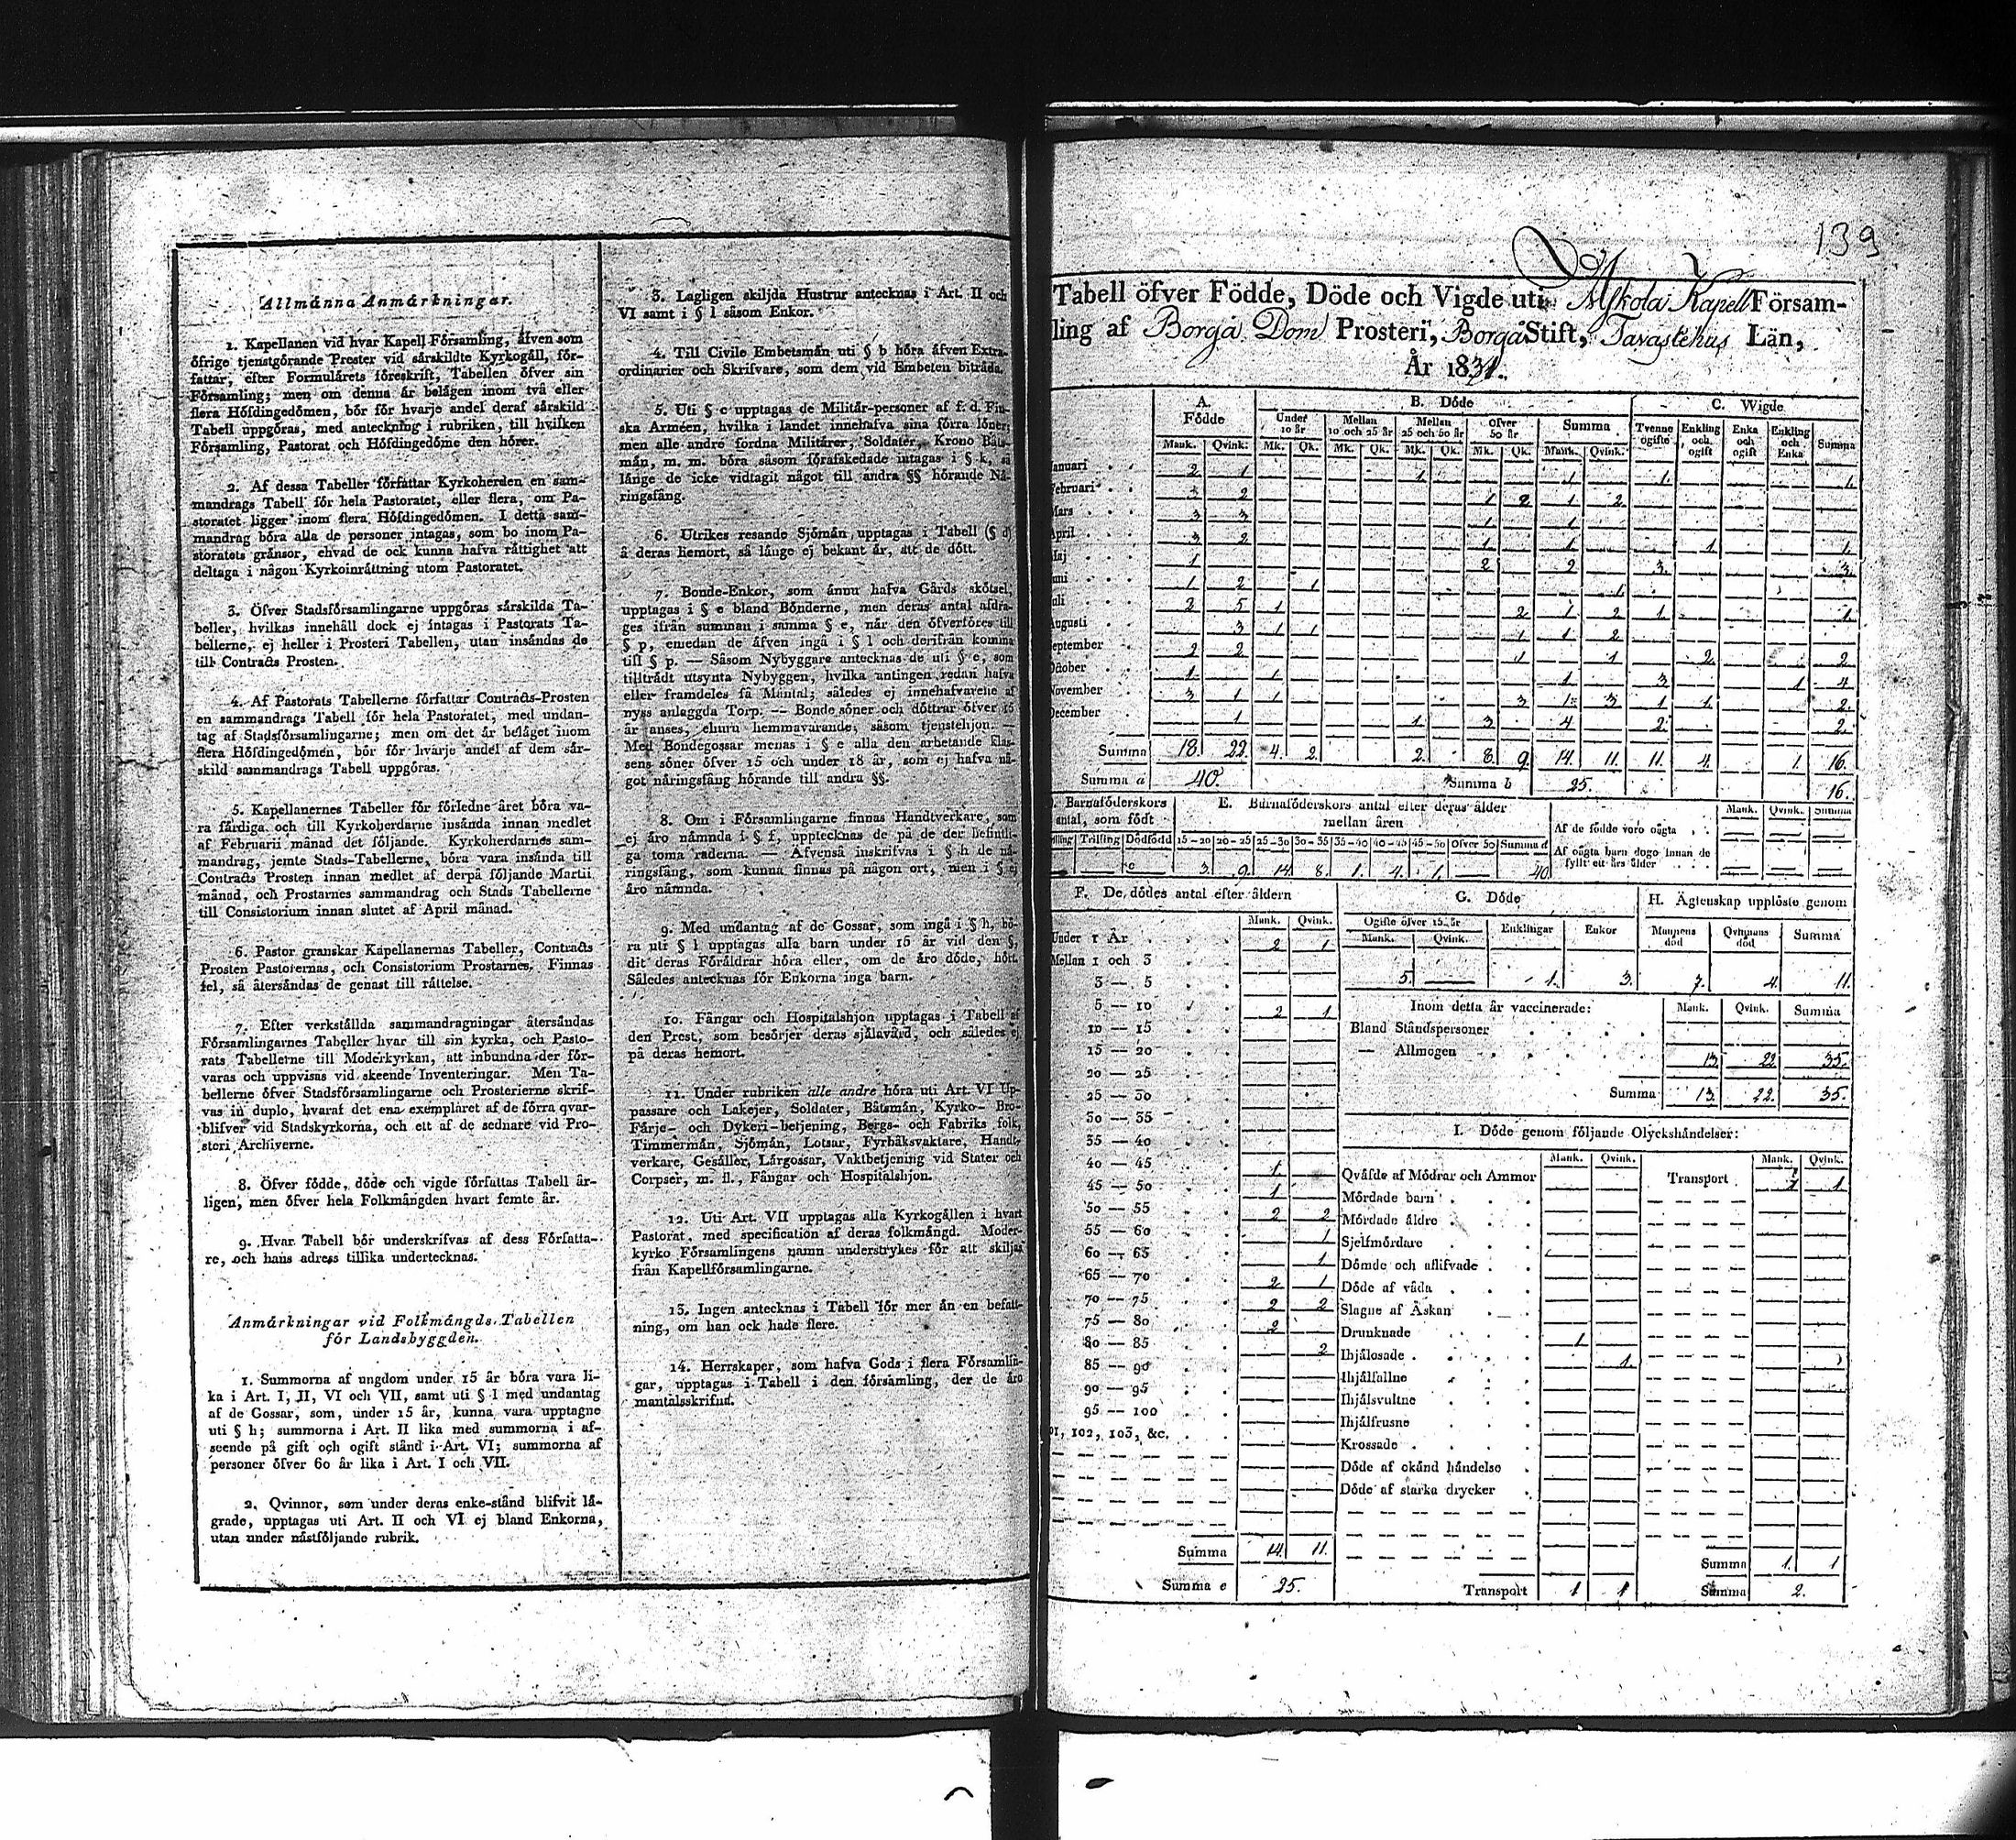 Allmänna Anmärkningar.
1. Kapellanen vid hvar Kapell Församling, äfven som
öfrige tjenstgörande Prester vid särskildte Kyrkogäll, för-
fattar, efter Formulärets föreskrift, Tabellen öfver sin
Församling; men om denna är belägen inom två eller
flera Höfdingedömen, bör för hvarje andel deraf särskild
Tabell uppgöras, med anteckning i rubriken, till hvilken
Församling, Pastorat och Höfdingedöme den hörer.
2. Af dessa Tabeller författar Kyrkoherden en sam-
mandrags Tabell för hela Pastoratet, eller flera, om Pa-
storatet ligger inom flera Höfdingedömen. I detta sam-
mandrag böra alla de personer intagas, som bo inom Pa-
storatets gränsor, ehvad de ock kunna hafva rättighet att
deltaga i någon Kyrkoinrättning utom Pastoratet.
3. Öfver Stadsförsamlingarne uppgöras särskilda Ta-
beller, hvilkas innehåll dock ej intagas i Pastorats Ta-
bellerne, ej heller i Prosteri Tabellen, utan insändas de
till Contracts Prosten.
4. Af Pastorats Tabellerne författar Contracts-Prosten
en sammandrags Tabell för hela Pastoratet, med undan-
tag af Stadsförsamlingarne; men om det är beläget inom
flera Höfdingedömen, bör för hvarje andel af dem sär-
skild sammandrags Tabell uppgöras.
5. Kapellanernes Tabeller för förledne året böra va-
ra färdiga och till Kyrkoherdarne insända innan medlet
af Februarii månad det följande. Kyrkoherdarnes sam-
mandrag, jemte Stads-Tabellerne, böra vara insända till
Contracts Prosten innan medlet af derpå följande Martii
månad, och Prostarnes sammandrag och Stads Tabellerne
till Consistorium innan slutet af April månad.
6. Pastor granskar Kapellanernas Tabeller, Contracts
Prosten Pastorernas, och Consistorium Prostarnes. Finnas
fel, så återsändas de genast till rättelse.
7. Efter verkställda sammandragningar återsändas
Församlingarnes Tabeller hvar till sin kyrka, och Pasto-
rats Tabellerne till Moderkyrkan, att inbundna der för-
varas och uppvisas vid skeende Inventeringar. Men Ta-
bellerne öfver Stadsförsamlingarne och Prosterierne skrif-
vas in duplo, hvaraf det ena exemplaret af de förra qvar-
blifver vid Stadskyrkorna, och ett af de sednare vid Pro-
steri Archiverne.
8. Öfver födde, döde och vigde författas Tabell år-
ligen, men öfver hela Folkmängden hvart femte år.
9. Hvar Tabell bör underskrifvas af dess Författa-
re, och hans adress tillika undertecknas.
Anmärkningar vid Folkmängds Tabellen
för Landsbyggden.
1. Summorna af ungdom under 15 år böra vara li-
ka i Art. I, II, VI och VII, samt uti § l med undantag
af de Gossar, som, under 15 år, kunna vara upptagne
uti § h; summorna i Art. II lika med summorna i af-
seende på gift och ogift stånd i Art. VI; summorna af
personer öfver 60 år lika i Art. I och VII.
2. Qvinnor, som under deras enke-stånd blifvit lä-
grade, upptagas uti Art. II och VI ej bland Enkorna,
utan under nästföljande rubrik.
3. Lagligen skiljda Hustrur antecknas i Art. II och
VI samt i § l såsom Enkor.
4. Till Civile Embetsmän uti § b höra äfven Extra-
ordinarier och Skrifvare, som dem vid Embeten biträda.
5. Uti § c upptagas de Militär-personer af f. d. Fin-
ska Armeen, hvilka i landet innehafva sina förra löner;
men alle andre fordna Militärer, Soldater, Krono Båts-
män, m. m. böra såsom förafskedade intagas i § k, så
länge de icke vidtagit något till andra §§ hörande Nä-
ringsfång.
6. Utrikes resande Sjömän upptagas i Tabell (§ d)
å deras hemort, så länge ej bekant är, att de dött.
7. Bonde-Enkor, som ännu hafva Gårds skötsel,
upptagas i § e bland Bönderne, men deras antal afdra-
ges ifrån summan i samma § e, när den öfverföres till
§ p, emedan de äfven ingå i § l och derifrån komma
till § p. — Såsom Nybyggare antecknas de uti § e, som
tillträdt utsynta Nybyggen, hvilka antingen redan hafva
eller framdeles få Mantal; således ej innehafvarene af
nyss anlaggda Torp. — Bonde söner och döttrar öfver 15
år anses, ehuru hemmavarande, såsom tjenstehjon. —
Med Bondegossar menas i § e alla den arbetande klas-
sens söner öfver 15 och under 18 år, som ej hafva nå-
got näringsfång hörande till andra §§.
8. Om i Församlingarne finnas Handtverkare, som
ej äro nämnda i § f, upptecknas de på de der befintli-
ga toma raderna. — Äfvenså inskrifvas i § h de nä-
ringsfång, som kunna finnas på någon ort, men i § ej
äro nämnda.
9. Med undantag af de Gossar, som ingå i § h, bö-
ra uti § l upptagas alla barn under 15 år vid den §,
dit deras Föräldrar höra eller, om de äro döde, hört.
Således antecknas för Enkorna inga barn.
10. Fångar och Hospitalshjon upptagas i Tabell af
den Prest, som besörjer deras själavård, och således ej
på deras hemort.
11. Under rubriken alle andre höra uti Art. VI Up-
passare och Lakejer, Soldater, Båtsmän, Kyrko- Bro-
Färje- och Dykeri-betjening, Bergs- och Fabriks folk,
Timmermän, Sjömän, Lotsar, Fyrbåksvaktare, Handt-
verkare, Gesäller, Lärgossar, Vaktbetjening vid Stater och
Corpser, m. fl., Fångar och Hospitalshjon.
12. Uti Art. VII upptagas alla Kyrkogällen i hvart
Pastorat, med specification af deras folkmängd. Moder-
kyrko Församlingens namn understrykes för att skiljas
från Kapellförsamlingarne.
13. Ingen antecknas i Tabell för mer än en befatt-
ning, om han ock hade flere.
14. Herrskaper, som hafva Gods i flera Församlin-
gar, upptagas i Tabell i den församling, der de äro
mantalsskrifne.
139
Tabell öfver Födde, Döde och Vigde uti Mskola Kapell Försam-
ling af Borgå Dom Prosteri, Borgå Stift, Tavastehus Län,
År 1831.
A. Födde B. Döde C. Wigde
Under 10 år Mellan 10 och 25 år Mellan 25 och 50 år Öfver 50 år Summa Tvenne ogifte Enkling och ogift Enka och ogift Enkling och Enka Summa
Mank. Qvink. Mk. Qk. Mk. Qk. Mk. Qk. Mk. Qk. Mank. Qvink.
Januari 2 1 1 1 1 1
Februari 3 2 1 2 1 2
Mars 3 3 1 1
April 3 2 1 1 1 1
Maj 1 2 2 3 3
Juni 1 2 1 1
Juli 2 5 1 2 1 2 1 1
Augusti 3 1 1 1 1 2
September 2 2 1 1 2 2
October 1 1 1 3 1 4
November 3 1 1 3 1 3 1 1 2
December 1 1 3 4 2 2
Summa 18. 22 4. 2. 2. 8. 9. 14. 11. 11. 4. 1. 16.
Summa a 40. Summa b 25. 16.
D. Barnaföderskors antal, som födt
E. Barnaföderskors antal efter deras ålder mellan åren
Mank. Qvink. Summa
Af de födde voro oägta
Af oägta barn dogo innan de fyllt ett års ålder
Tvilling Trilling Dödfödd 15—20 20—25 25—30 30—35 35—40 40—45 45—50 Öfver 50 Summa d
3. 9. 14. 8. 1. 4. 1. — 40
F. De dödes antal efter åldern
Mank. Qvink.
Under 1 År 2 1
Mellan 1 och 3
3 — 5
5 — 10 2 1
10 — 15
15 — 20
20 — 25
25 — 30
30 — 35
35 — 40
40 — 45 1.
45 — 50 1
50 — 55 2 2
55 — 60 1
60 — 65 1
65 — 70 2 1
70 — 75 2 2
75 — 80 2
80 — 85 2
85 — 90
90 — 95
95 — 100
101, 102, 103, &c.
Summa 14. 11.
Summa e 25.
G. Döde
Ogifte öfver 15 år Enklingar Enkor
Mank. Qvink.
5. — 1. 3.
H. Ägtenskap upplöste genom
Mannens död Qvinnans död Summa
7. 4. 11.
Inom detta år vaccinerade: Mank. Qvink. Summa
Bland Ståndspersoner
— Allmogen 13. 22. 35.
Summa 13. 22. 35.
I. Döde genom följande Olyckshändelser:
Mank. Qvink. Mank. Qvink.
Qväfde af Mödrar och Ammor Transport 1 1
Mördade barn
Mördade äldre
Sjelfmördare
Dömde och aflifvade
Döde af våda
Slagne af Åskan
Drunknade 1
Ihjälosade 1.
Ihjälfallne
Ihjälsvultne
Ihjälfrusne
Krossade
Döde af okänd händelse
Döde af starka drycker
Summa 1. 1
Transport 1 1 Summa 2.